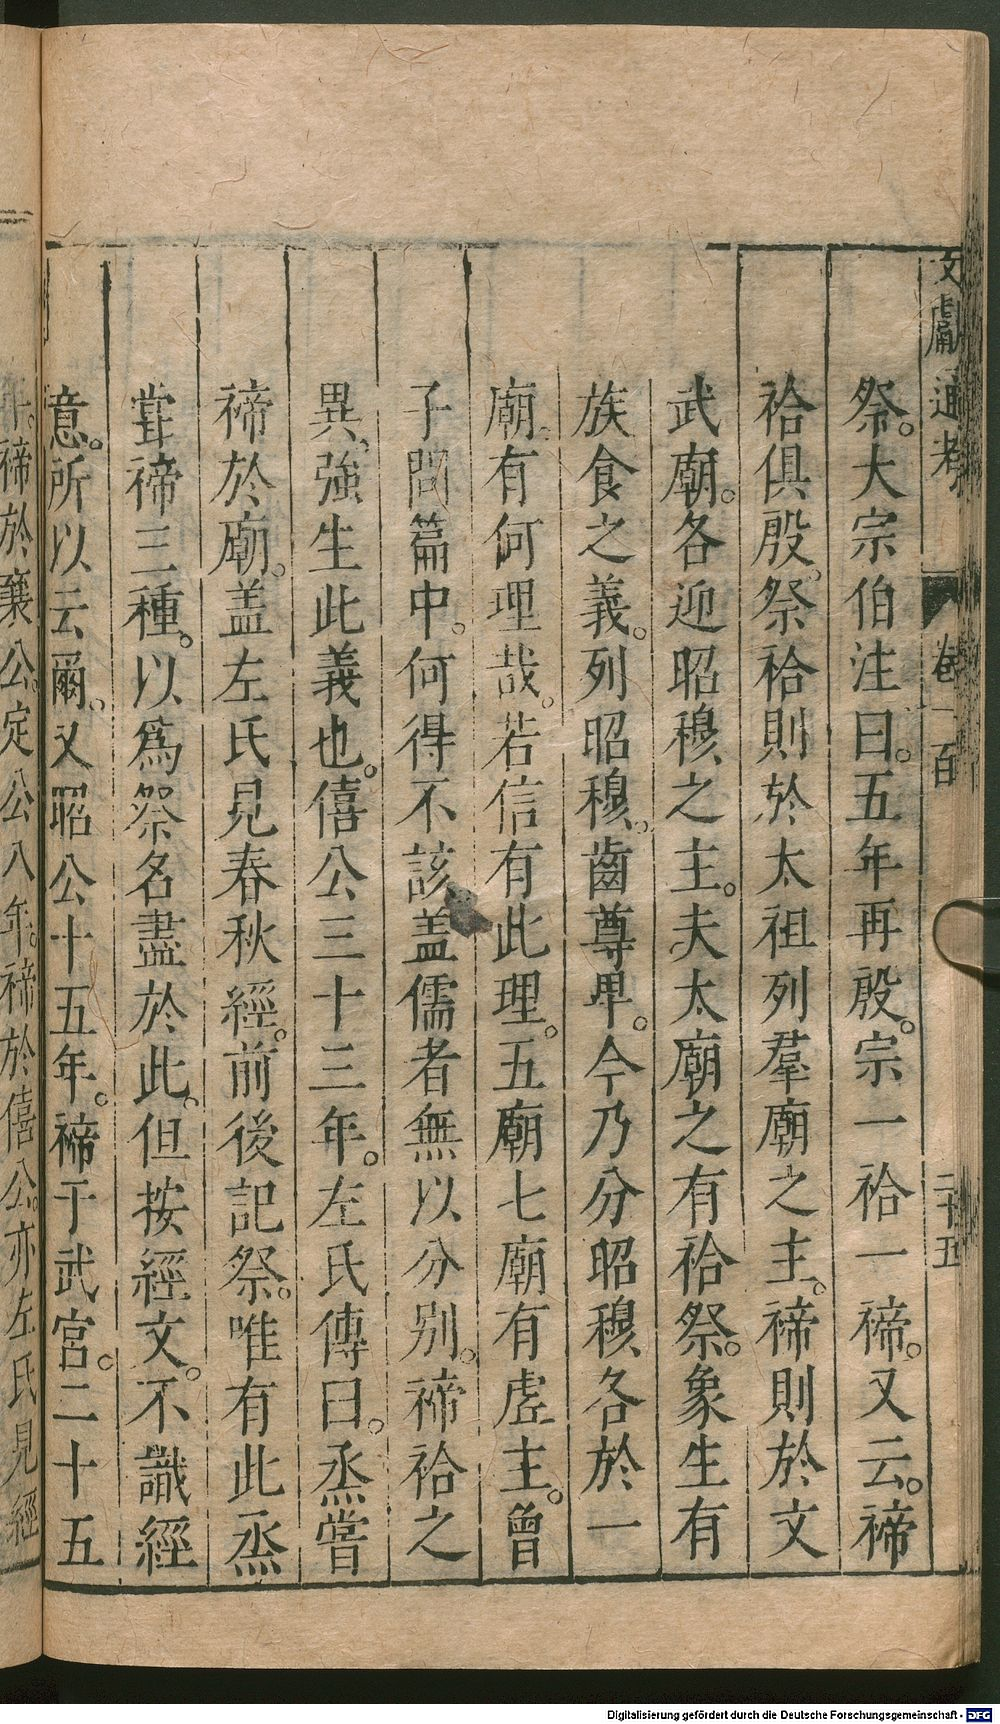 文獻通考 卷一百 二十五
祭。大宗伯注曰。五年再殷。宗一祫一禘。又云。禘
祫俱殷。祭祫則於太祖列羣廟之主。禘則於文
武廟。各迎昭穆之主。夫太廟之有祫祭。象生有
族食之義。列昭穆。齒尊卑。今乃分昭穆各於一
廟。有何理哉。若信有此理。五廟七廟有虛主。曾
子問篇中。何得不該盖儒者無以分别。禘祫之
異、強生此義也。僖公三十三年。左氏傳曰。烝嘗
禘於廟。盖左氏見春秋經。前後記祭。唯有此烝
甞禘三種。以爲祭名盡於此。但按經文。不識經
意。所以云爾。又昭公十五年。禘于武宮。二十五
年。禘於襄公。定公八年。禘於僖公。亦左氏見經
Digitalisierung gefördert durch die Deutsche Forschungsgemeinschaft - DFG